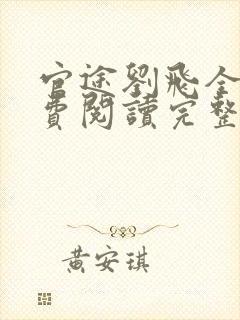 官途劉飛全
費閱讀完整
黃安琪